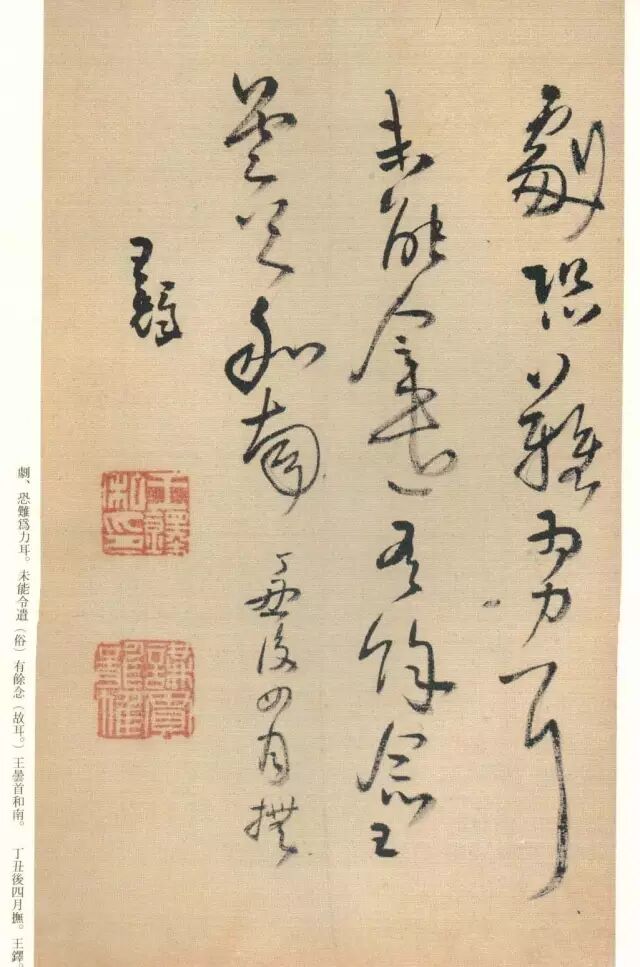 劇恐難爲力耳
未能令遣有餘念王
曇首和南 丁丑後四月撫
王鐸
王鐸私印
劇、恐難爲力耳。未能令遣(俗)有餘念(故耳。)王曇首和南。 丁丑後四月撫。王鐸。